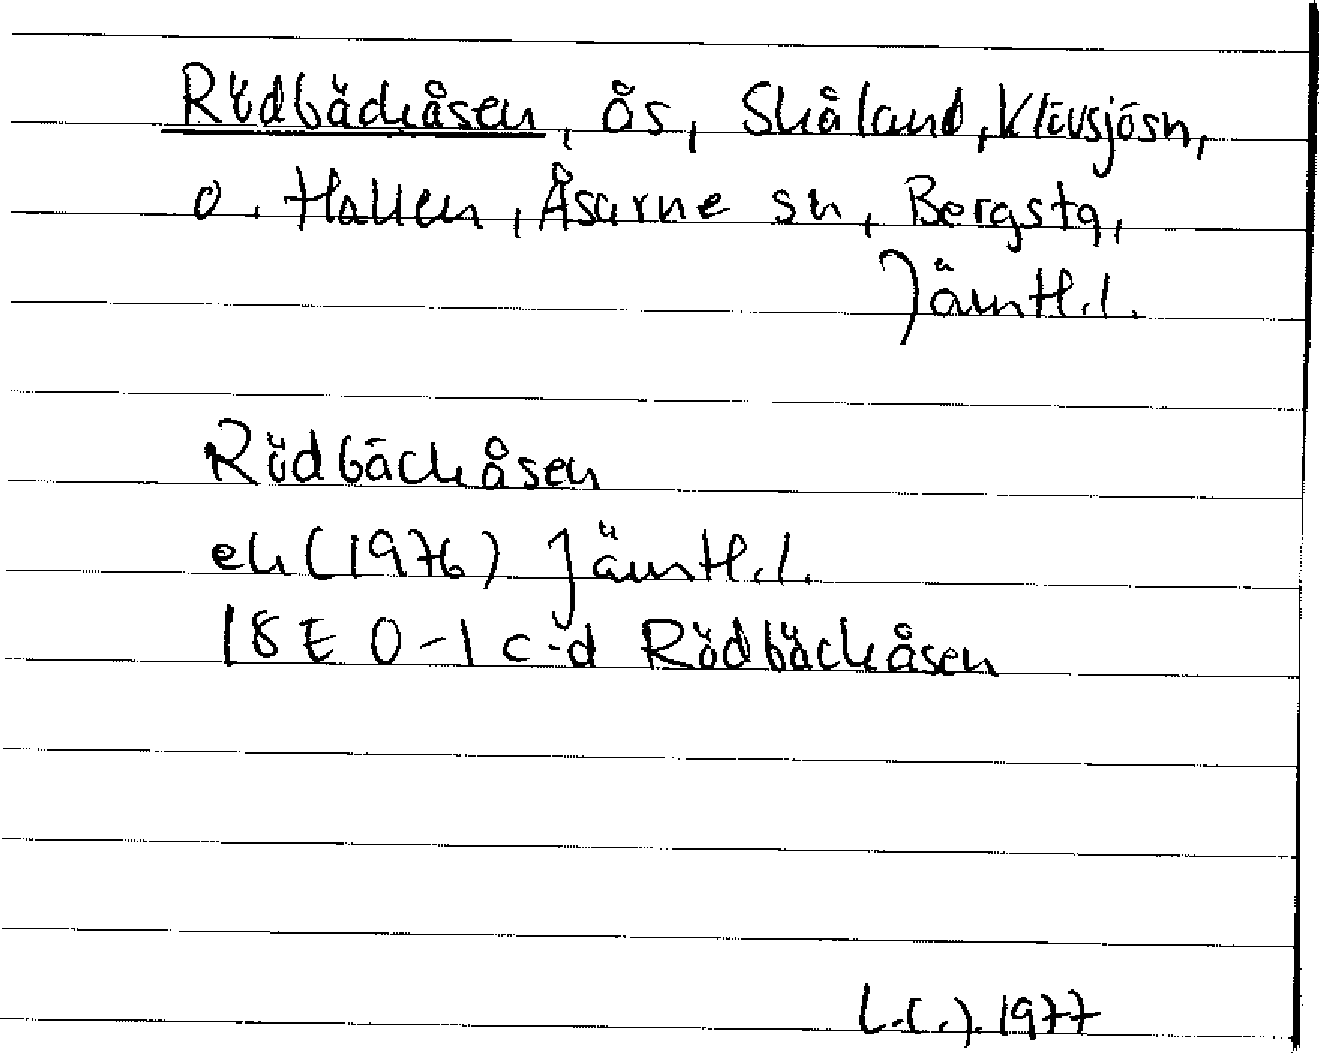 Rödbäckåsen, ås, Skåland, Klövsjö sn,
o. Hallen, Åsarne sn, Bergs tg,
Jämtl. l.
Rödbäckåsen
ek (1976) Jämtl. l.
18 E 0-1 c-d Rödbäckåsen
L.C.J. 1977